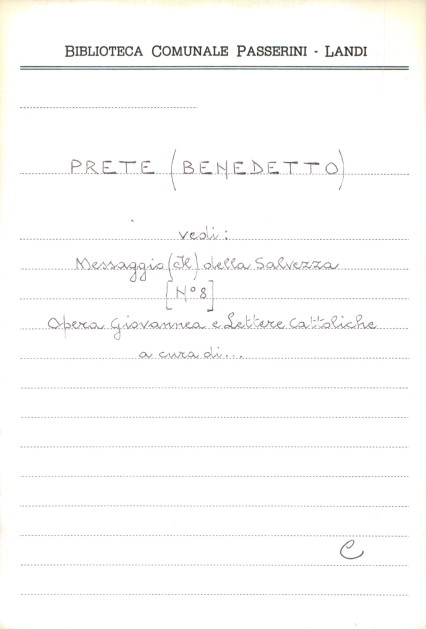 BIBLIOTECA COMUNALE PASSERINI - LANDI
PRETE (BENEDETTO)
vedi:
Messaggio (Il) della Salvezza
[N° 8]
Opera Giovannea e Lettere Cattoliche
a cura di...
C